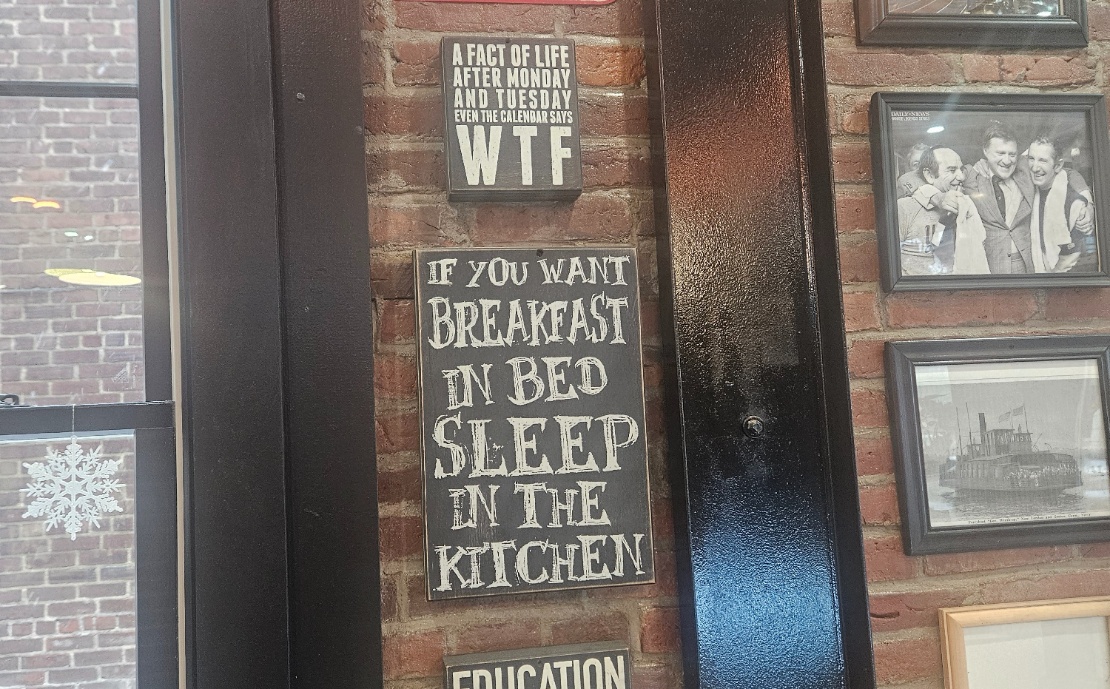 A FACT OF LIFE
AFTER MONDAY
AND TUESDAY
EVEN THE CALENDAR SAYS
WTF
IF YOU WANT
BREAKFAST
IN BED
SLEEP
IN THE
KITCHEN
EDUCATION
DAILY NEWS